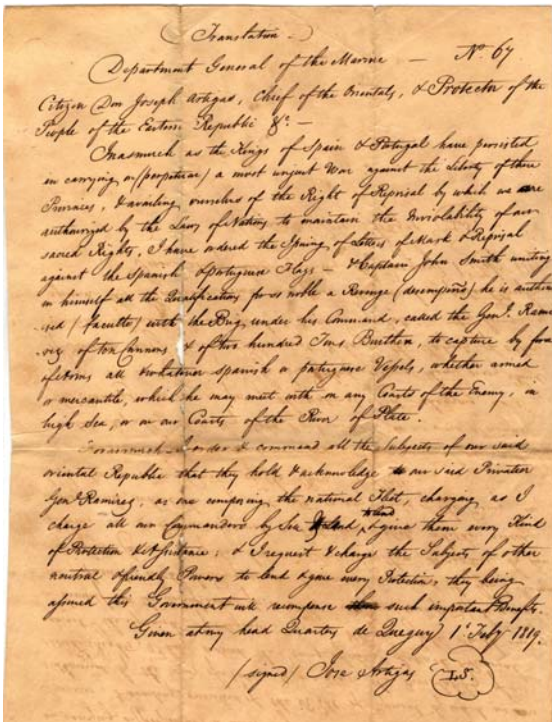 Translation
Department General of the Marine — No. 67
Citizen Don Joseph Artigas, Chief of the Orientals, & Protector of the
People of the Eastern Republic &c. —
Inasmuch as the Kings of Spain & Portugal have persisted
in carrying on (perpetrar) a most unjust War against the Liberty of these
Provinces, & availing ourselves of the Right of Reprisal by which we are
authorized by the Laws of Nations to maintain the Inviolability of our
sacred Rights, I have ordered the Issuing of Letters of Mark & Reprisal
against the Spanish & portuguese Flags — & Captain John Smith uniting
in himself all the Qualifications for so noble a Revenge he is author
ised (faculto) with the Brig, under his Command, called the Genl. Rami
rez of ten Cannons, & of two hundred Tons Burthen, to capture by force
of Arms all whatever spanish or portuguese Vessels, whether armed
or mercantile, which he may meet with on any Coasts of the Enemy, in
high Sea, or on our Coasts of the River of Plate.
I order & command all the Subjects of our said
oriental Republic that they hold & acknowledge our said Privateer
Genl. Ramirez, as one composing the national Fleet, charging as I
charge all our Commanders by Sea & Land, & give them every Kind
of Protection & Assistance; & I request & charge the Subjects of other
neutral & friendly Powers to lend & gave every Protection, they being
assured this Government will recompense such important Benefits.
Given at my head Quarters de 1st July 1819.
(signed) Jose Artigas L.S.